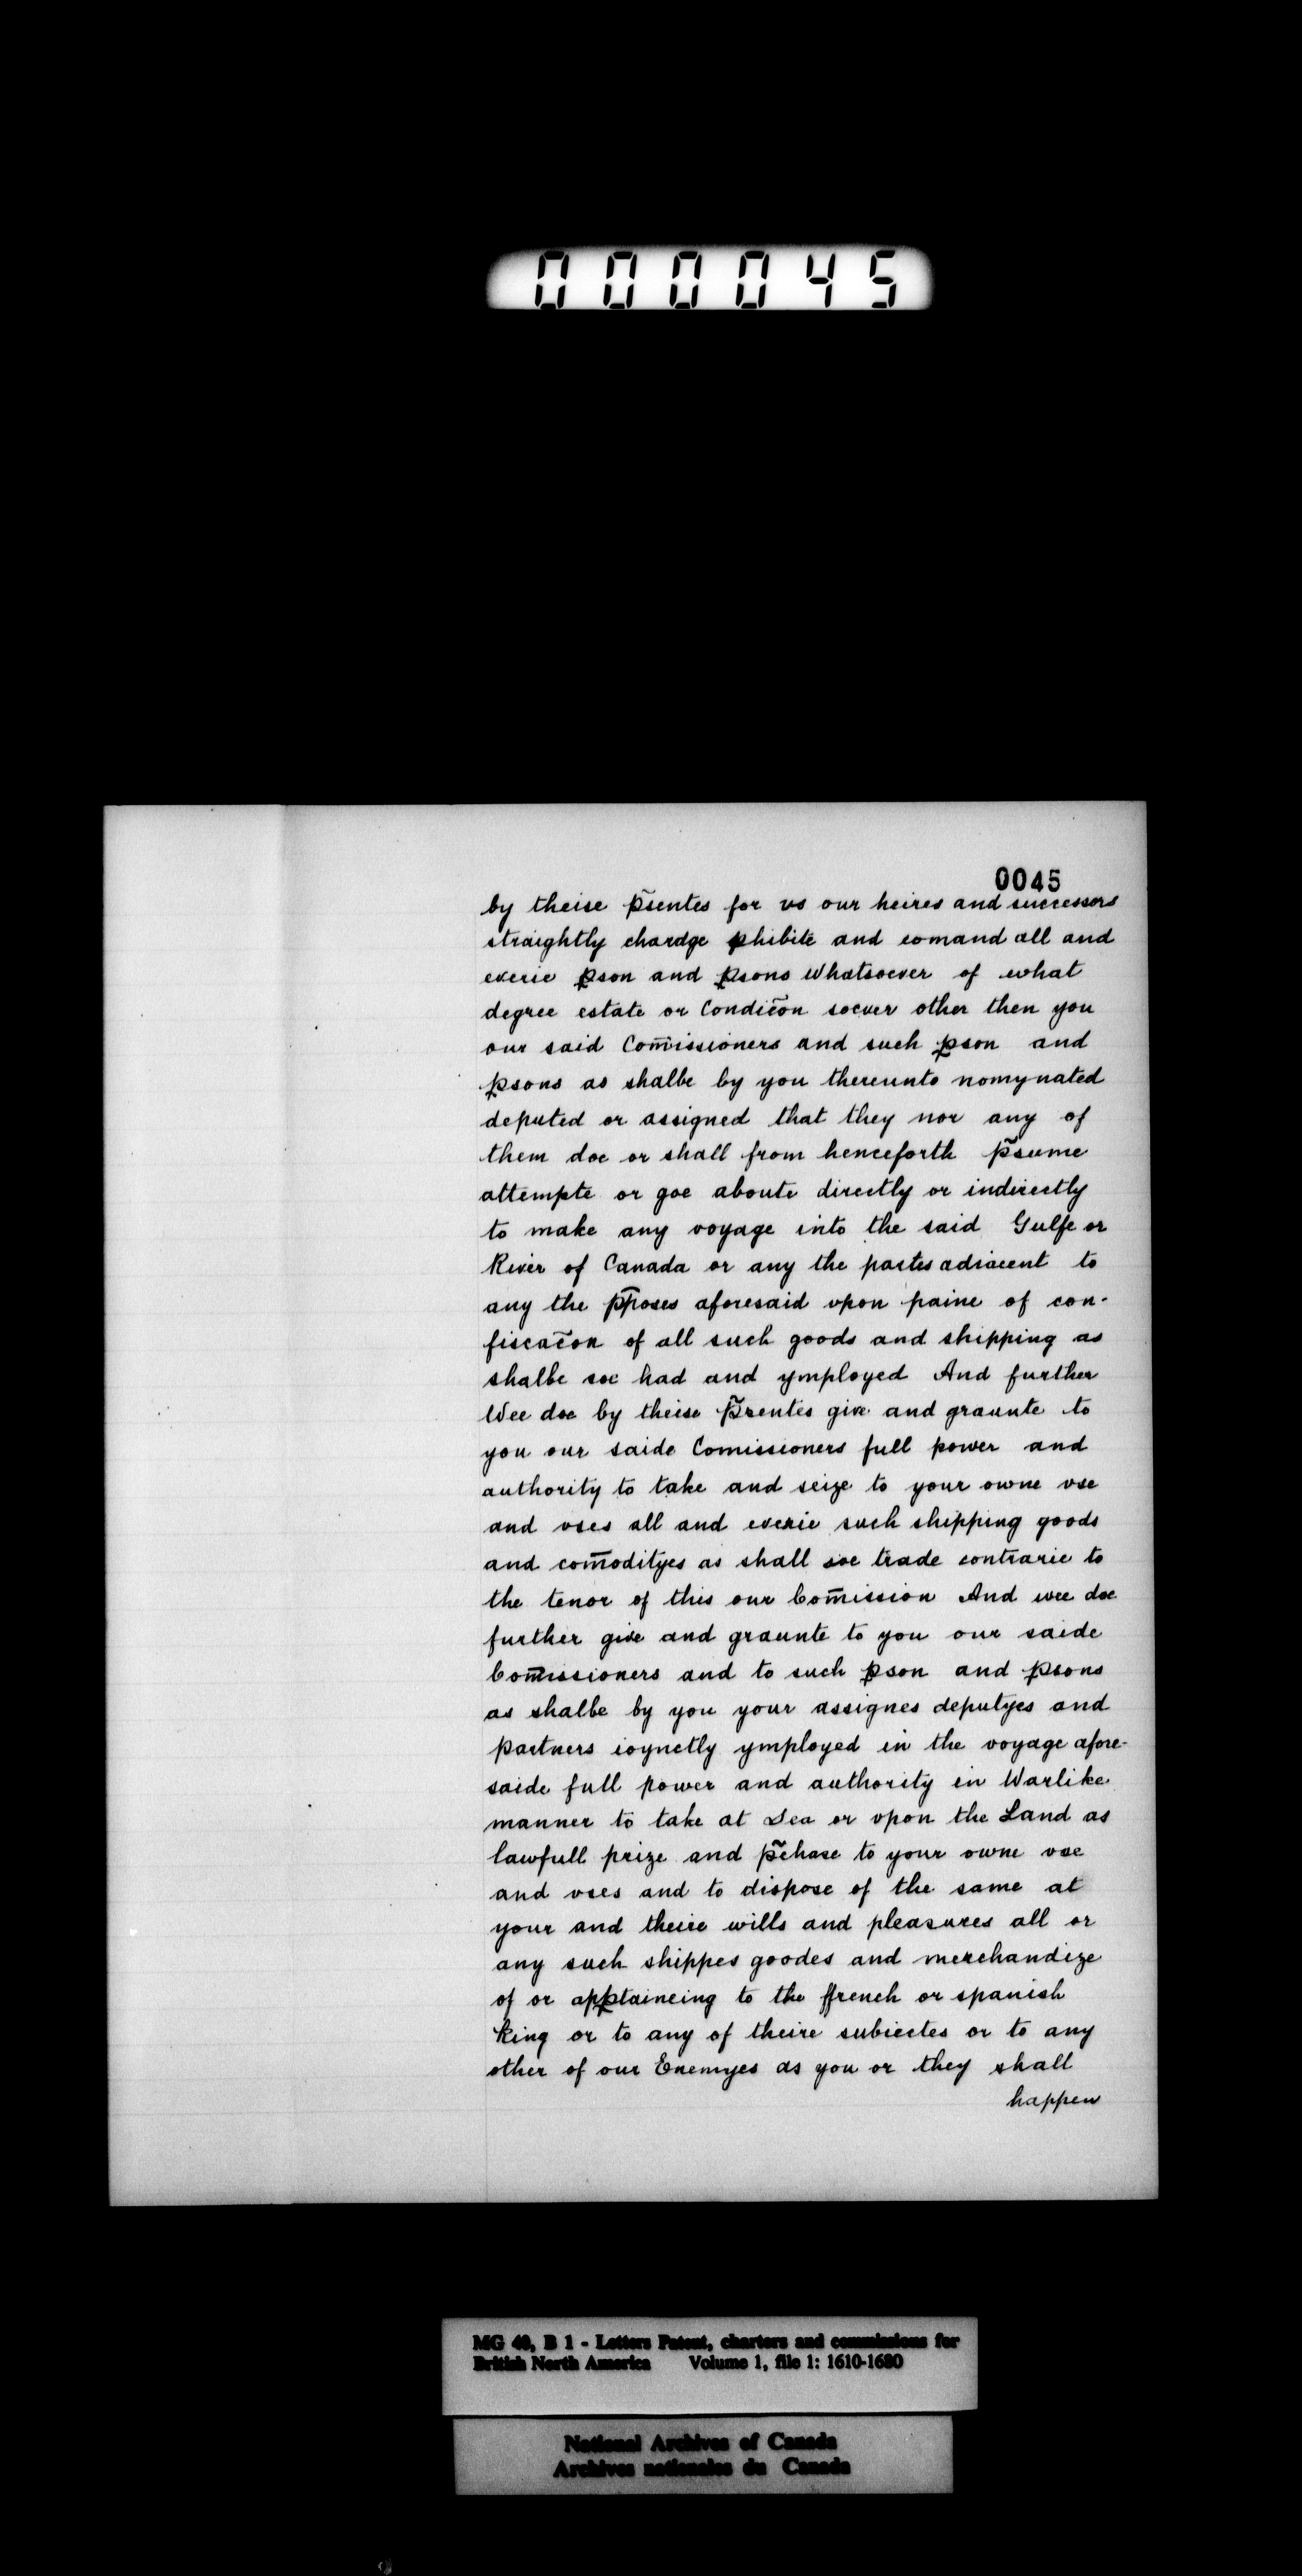 000045
0045
by theise p̃sentes for vs our heires and successors
straightly chardge ꝓhibite and comand all and
everie ꝑson and ꝑsons Whatsoever of what
degree estate or Condic̃on soever other then you
our said Com̃issioners and such ꝑson and
ꝑsons as shalbe by you thereunto nomynated
deputed or assigned that they nor any of
them doe or shall from henceforth p̃sume
attempte or goe aboute directly or indirectly
to make any voyage into the said Gulfe or
River of Canada or any the partes adiacent to
any the p̄poses aforesaid vpon paine of con-
fiscac̃on of all such goods and shipping as
shalbe soe had and ymployed And further
Wee doe by theise p̃sentes give and graunte to
you our saide Comissioners full power and
authority to take and seize to your owne vse
and vses all and everie such shipping goods
and com̄odityes as shall soe trade contrarie to
the tenor of this our Com̄ission And wee doe
further give and graunte to you our saide
Com̄issioners and to such ꝑson and ꝑsons
as shalbe by you your assignes deputyes and
partners ioynctly ymployed in the voyage afore-
saide full power and authority in Warlike
manner to take at Sea or vpon the Land as
lawfull prize and p̃chase to your owne vse
and vses and to dispose of the same at
your and theire wills and pleasures all or
any such shippes goodes and merchandize
of or apꝑtaineing to the ffrench or spanish
King or to any of theire subiectes or to any
other of our Enemyes as you or they shall
happen
MG 40, B 1 - Letters Patent, charters and commissions for
British North America Volume 1, file 1: 1610-1680
National Archives of Canada
Archives nationales du Canada